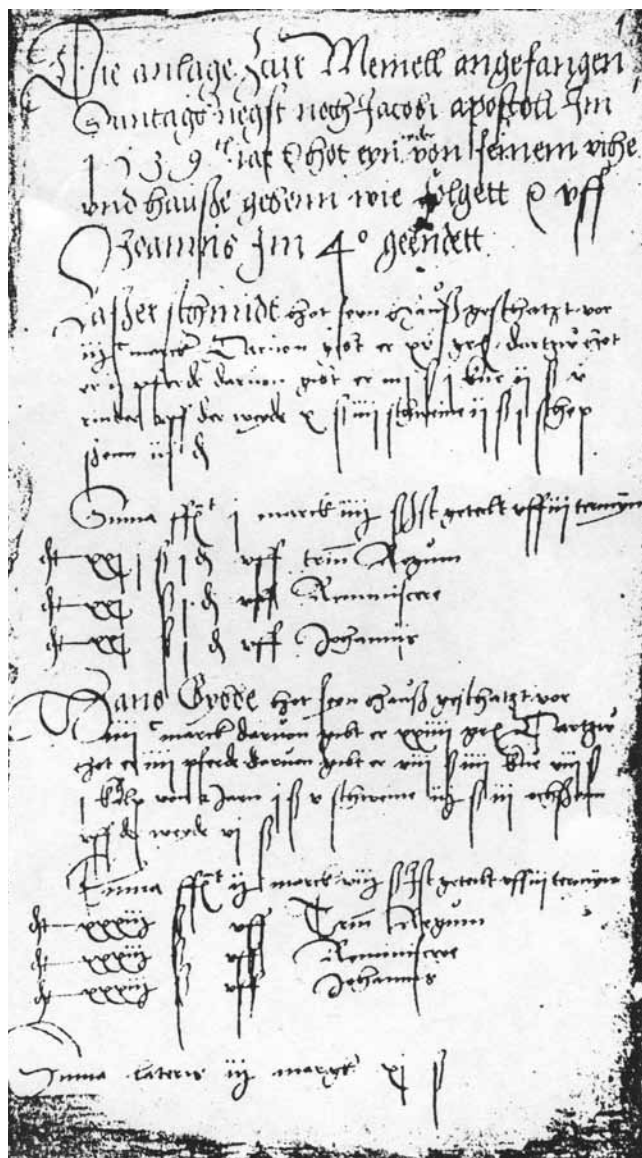 1
Die anlage Zcur Memell angefangen
Suntags negst noch Jacobi apostoli Im
1539 iar hot eyn yder von seinem vihe
vnd hauße gebenn wie folgett vff
Joannis Im 4° geendett
schmidt hot seyn hauß geschatzt vor
iij c marck Daruon gibt er xv gr dartzu hot
er pferde daruon gibt er iiij ß i kue ii ß v
rinder vff der weyde x ß iiii schweine ii ß i schep
ßenn
Suma ff i marck iiij ß Ist geteilt vff iii termyn
dt xxj ß i d vff trium Regum
dt xxj ß i d vff Reminiscere
dt xxj ß i d vff Johannis
Hans hot seyn hauß geschatzt vor
iiii c marck daruon gibt er xxiiii gr Dartzu
hot er iiii pferde daruon gibt er viii ß iiii kue viii ß
i von 2 Jarn i ß v schweine iij ß iii ochßenn
vff der weyde vi ß
Suma ff ij marck viij ß Ist geteilt vff iii termyn
dt xxxiij ß vff Trium Regum
dt xxxiij ß vff Reminiscere
dt xxxiij ß vff Johannis
Suma lateris iij margk xj ß